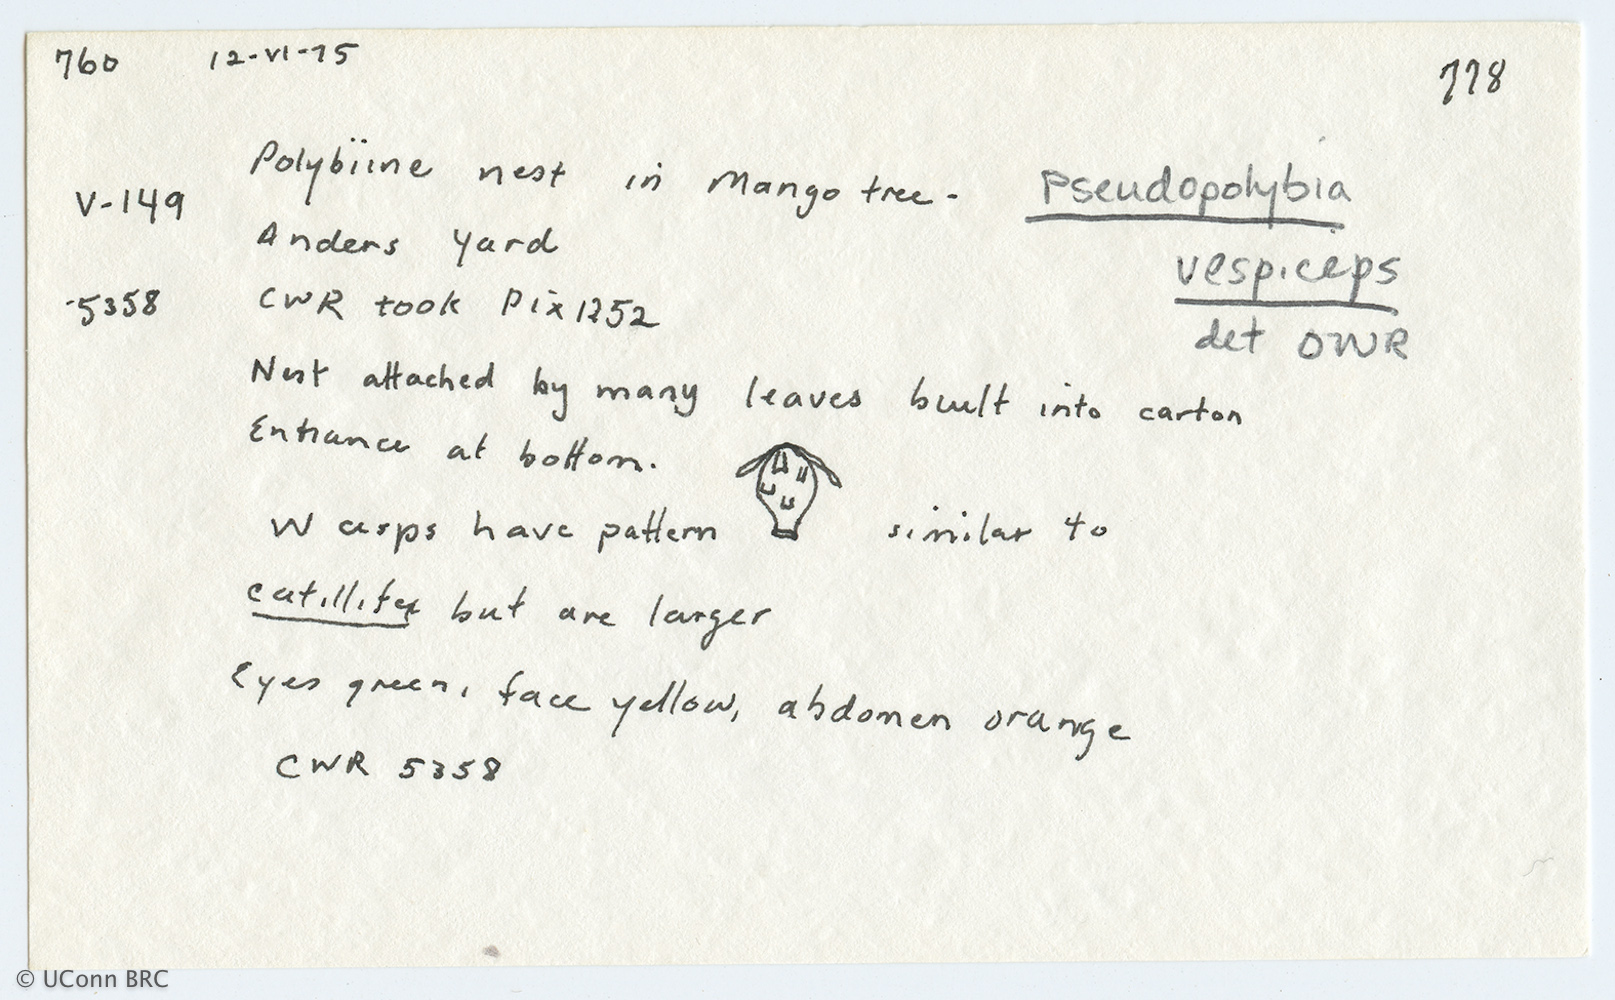 760 12-VI-75 778
Polybiine nest in Mango tree. Pseudopolybia
V-149
Anders Yard vespiceps
-5358 CWR took Pix 1252 det OWR
Nest attached by many leaves built into carton
Entrance at bottom.
Wasps have pattern similar to
catillifex but are larger
Eyes green, face yellow, abdomen orange
CWR 5358
© UConn BRC